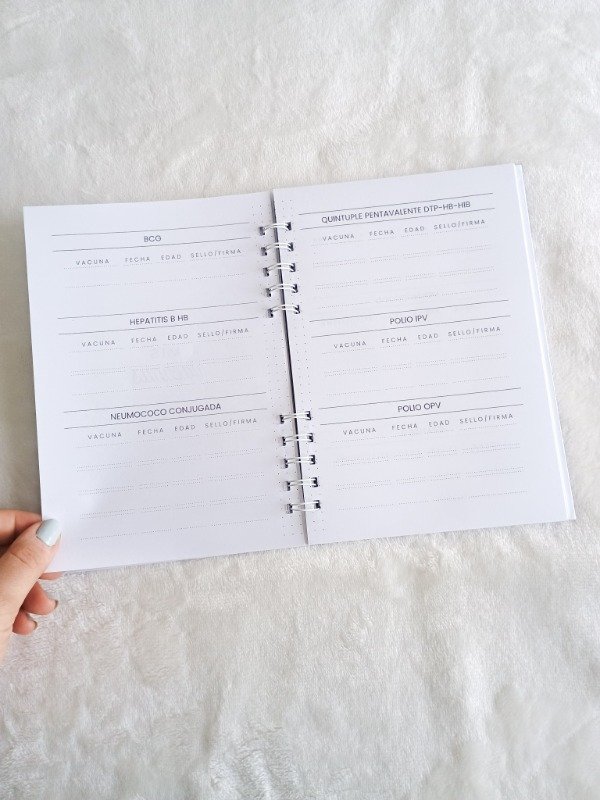 BCG
VACUNA FECHA EDAD SELLO/FIRMA
HEPATITIS B HB
VACUNA FECHA EDAD SELLO/FIRMA
NEUMOCOCO CONJUGADA
VACUNA FECHA EDAD SELLO/FIRMA
QUINTUPLE PENTAVALENTE DTP-HB-HIB
VACUNA FECHA EDAD SELLO/FIRMA
POLIO IPV
VACUNA FECHA EDAD SELLO/FIRMA
POLIO OPV
VACUNA FECHA EDAD SELLO/FIRMA